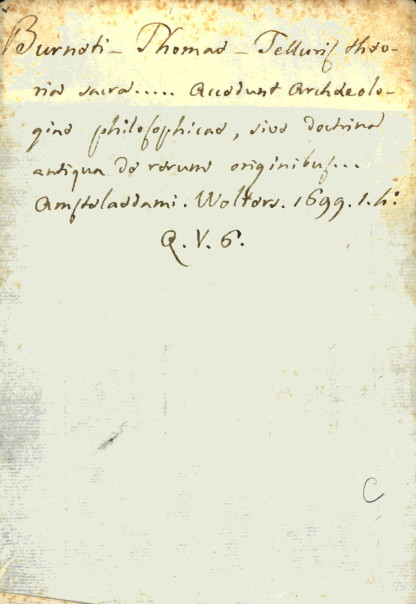 Burneti - Thomae - Telluris theo-
ria sacra..... Accedunt Archaeolo-
giae philosophicae, sive doctrina
antiqua de rerum originibus...
Amstelaedami. Wolters. 1699. 1. 4:
Q. V. 6.
C